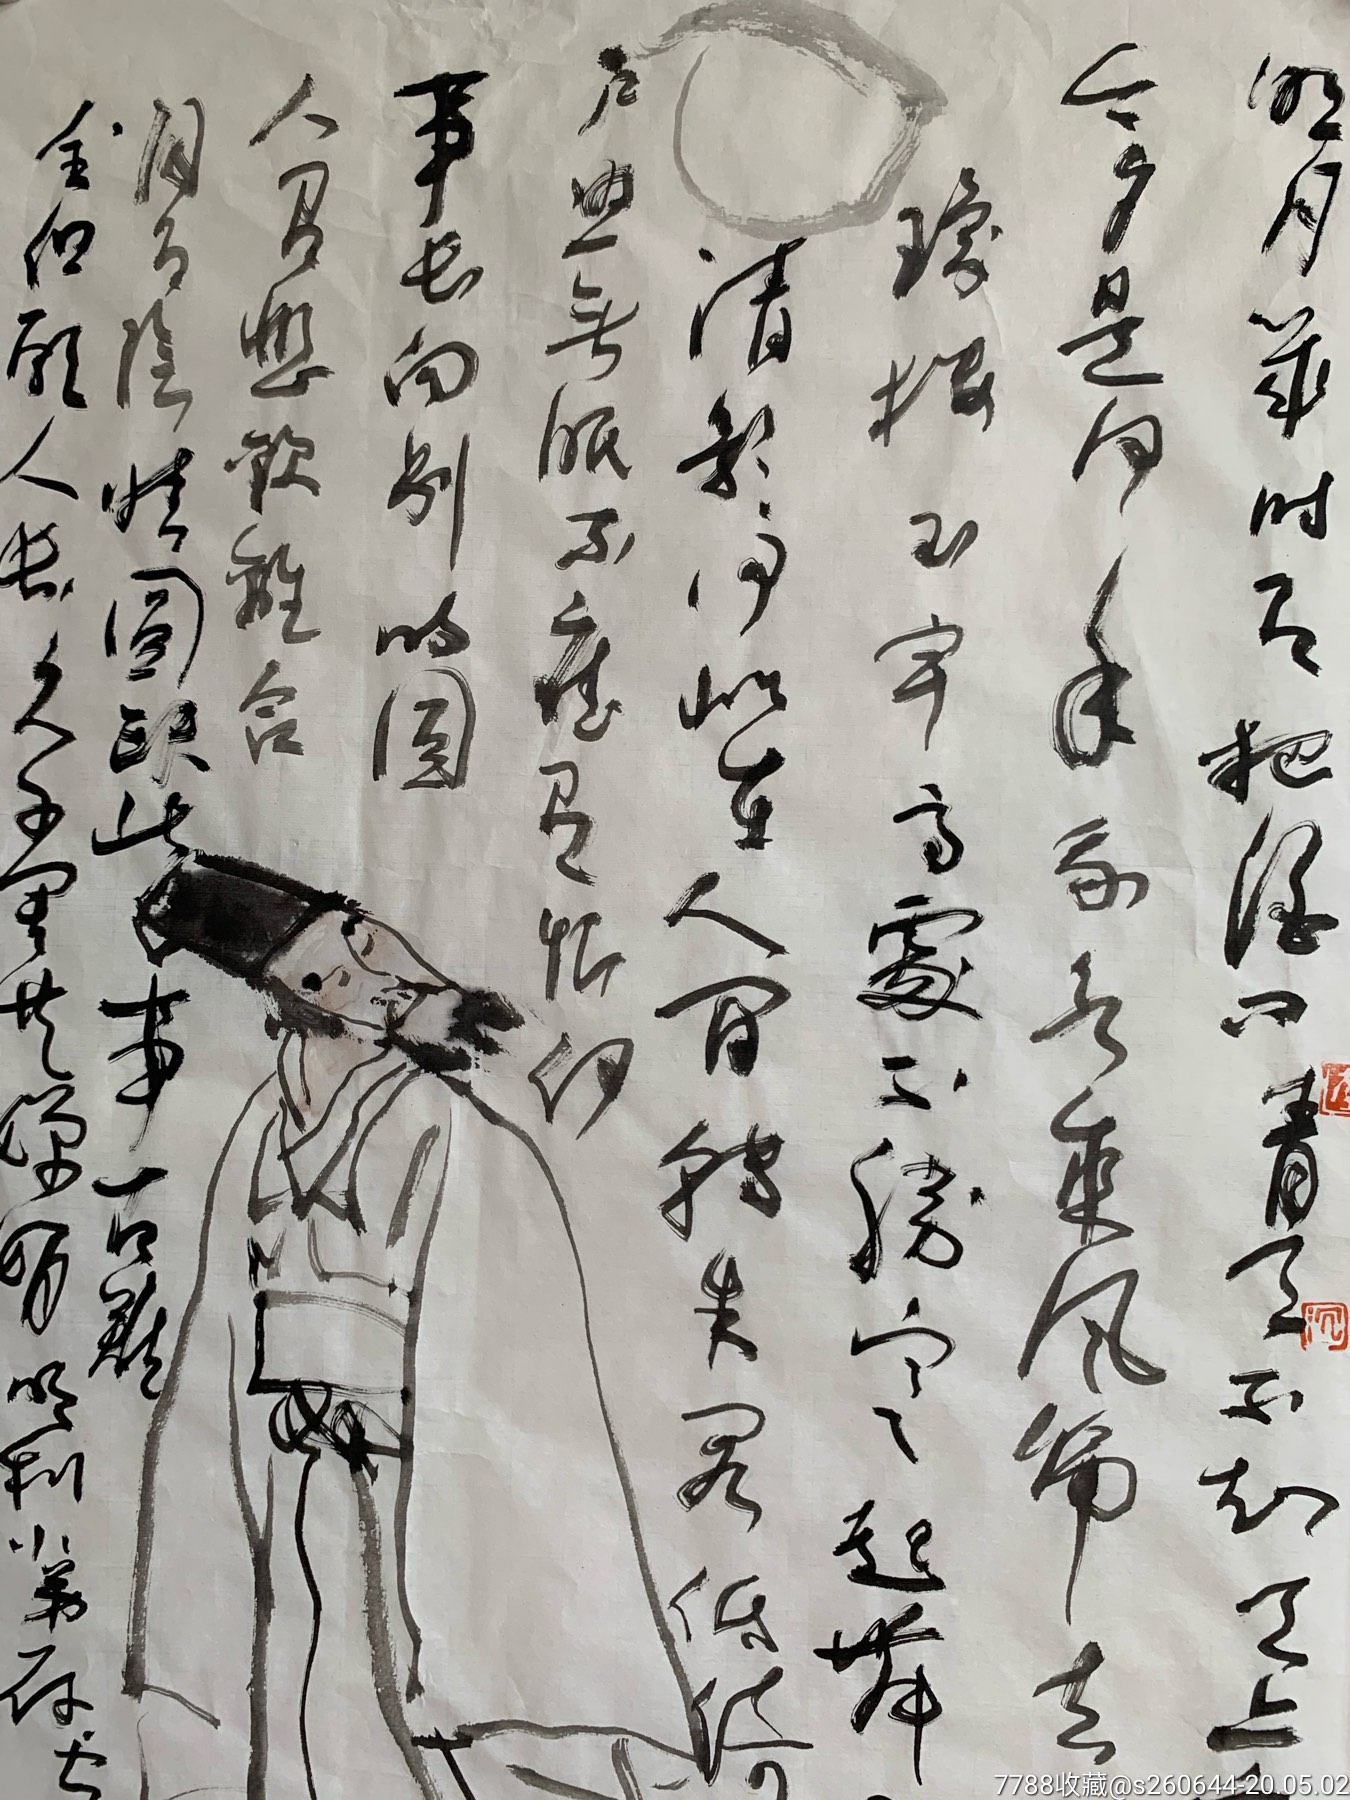 明月几时有把酒问青天不知天上
今夕是何年我欲乘风归去
琼楼玉宇高處不勝寒起舞
清影何似在人间转朱阁低绮
户照无眠不应有恨何
事长向别时圆
人有悲欢離合
月有陰晴圆缺此事古難
全但願人長久千里共嬋娟
7788收藏@s260644-20.05.02